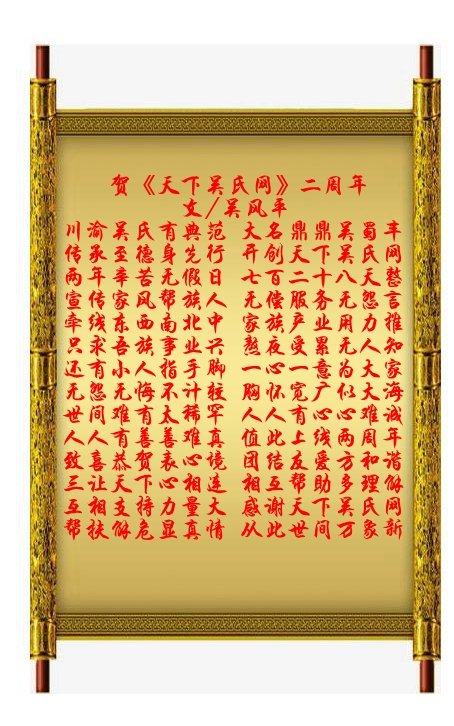 贺《天下吴氏网》二周年
文/吴风平
川渝吴氏有典范 大名鼎鼎吴蜀丰
传承至德身先行 开创天下吴氏网
两年辛苦无假日 七百二十八天整
宣传家风帮族人 无偿服务无怨言
牵线东西南北中 家族产业用力推
只求吾族事业兴 熬夜受累无人知
还有小人指手脚 一心一意为大家
无怨无悔不计较 胸怀宽广似大海
世间难有太稀罕 人人有心心难诚
人人有善善难真 值此上线两周年
致喜恭贺表心境 团结友爱方和谐
三让天下心相连 相互帮助多理解
互相支持力量大 感谢天下吴氏网
帮扶解危显真情 从此世间万象新